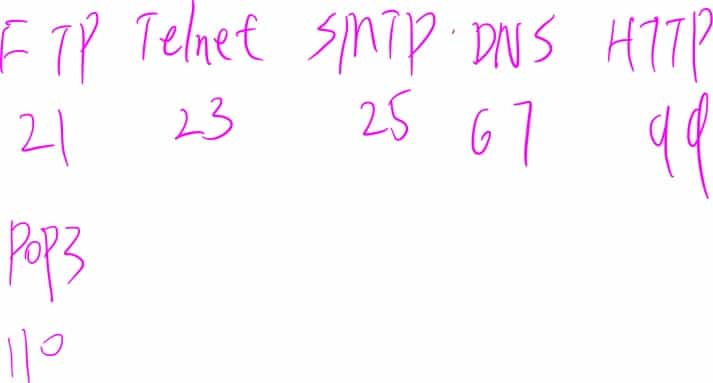 FTP Telnet SMTP. DNS HTTP
21 23 25 67 99
POP3
110